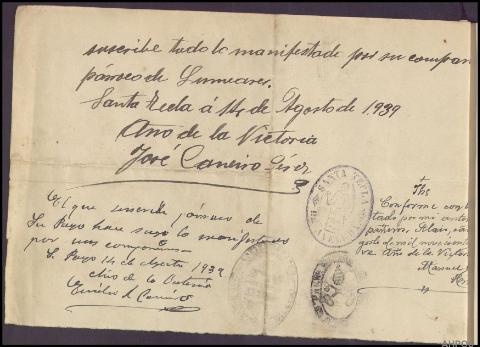 suscribe todo lo manifestado por su compan
párroco de Lumeares.
Santa Tecla á 14 de Agosto de 1939
Año de la Victoria
José Caneiro Pérez
El que suscribe párroco de
San Payo hace suyo lo manifestado
por sus compañeros
S. Payo 14 de Agosto 1939
Año de la Victoria
Emilio A.
SANTA TECLA
Conforme con lo
tado por mi
gosto de mil novecientos
ve. Año de la Victor
Manuel
AHPOU